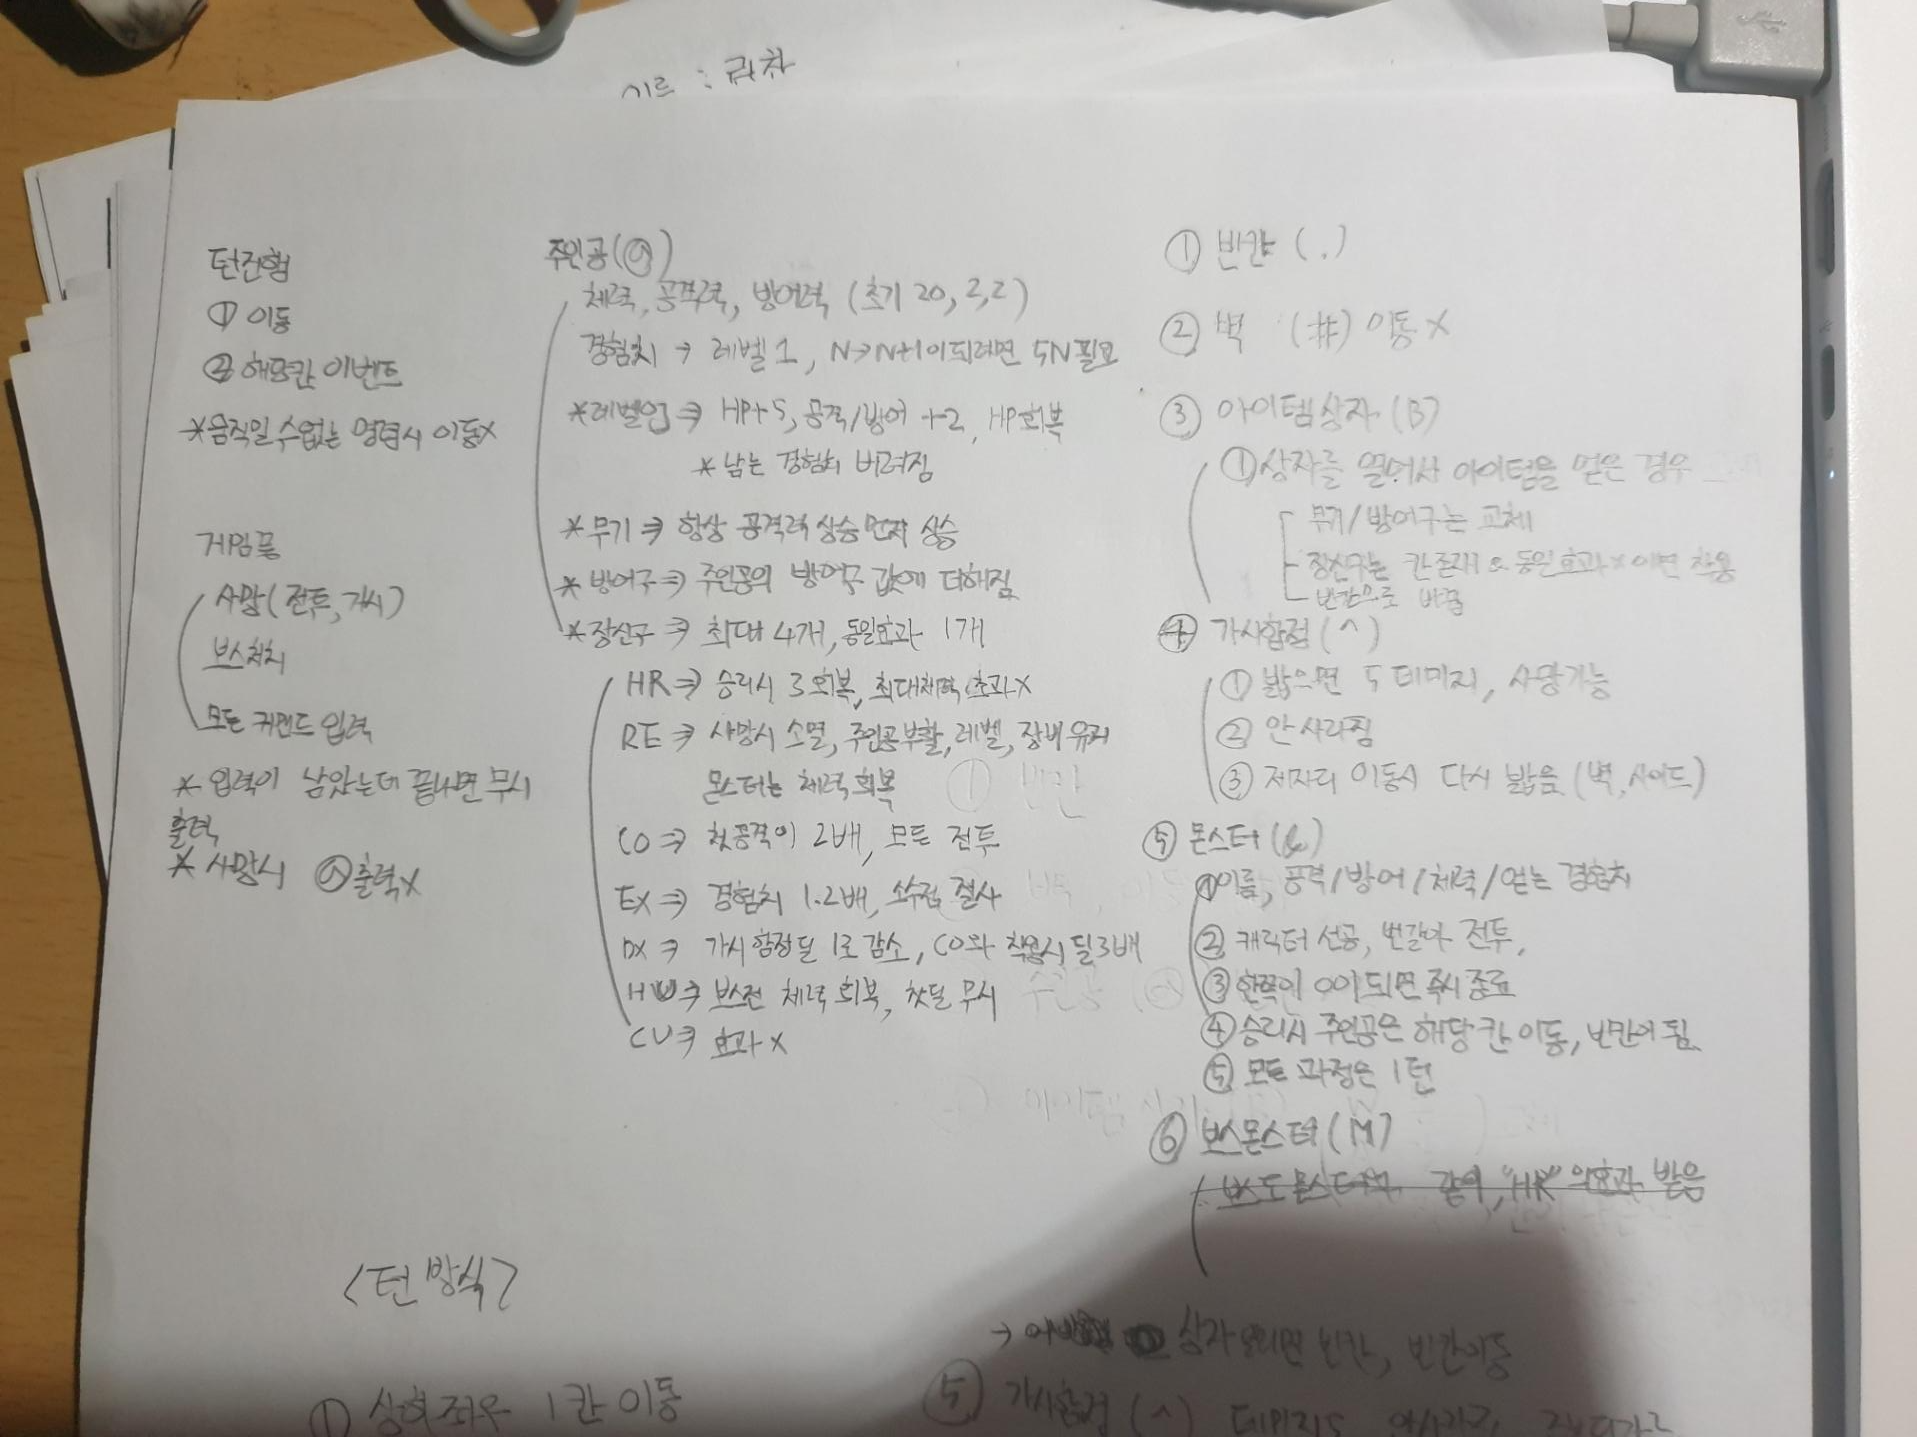 턴진행
① 이동
② 해당칸 이벤트
*움직일 수 없는 명령시 이동x
게임끝
사망(전투, 가시)
보스처치
모든 커맨드 입력
* 입력이 남았는데 끝나면 무시
출력
* 사망시 @출력x
주인공(@)
체력, 공격력, 방어력 (초기 20, 2,2)
경험치 → 레벨 1, N→N+1이 되려면 5N 필요
*레벨업 ⇒ HP+5, 공격/방어 +2, HP회복
* 남는 경험치 버려짐
* 무기 ⇒ 항상 공격력 상승 먼저 상승
* 방어구 ⇒ 주인공의 방어구 값에 더해짐
* 장신구 ⇒ 최대 4개, 동일효과 1개
HR ⇒ 승리시 3 회복, 최대체력 초과x
RE ⇒ 사망시 소멸, 주인공 부활, 레벨, 장비 유지
몬스터는 체력 회복
CO ⇒ 첫공격이 2배, 모든 전투
EX ⇒ 경험치 1.2배, 소수점 절사
DX ⇒ 가시함정 딜 1로 감소, CO와 착용시 딜3배
HU ⇒ 보스전 체력 회복, 첫딜 무시
CU ⇒ 효과 x
① 빈칸 (.)
② 벽 (#) 이동 x
③ 아이템상자 (B)
① 상자를 열어서 아이템을 얻은 경우
무기/방어구는 교체
장신구는 칸 존재 & 동일효과 x 이면 착용
빈칸으로 바뀜
④ 가시함정 (^)
① 밟으면 5 데미지, 사망가능
② 안 사라짐
③ 제자리 이동시 다시 밟음 (벽, 사이드)
⑤ 몬스터 (&)
① 이름, 공격/방어/체력/얻는 경험치
② 캐릭터 선공, 번갈아 전투,
③ 한쪽이 0이 되면 즉시 종료
④ 승리시 주인공은 해당 칸 이동, 빈칸이 됨
⑤ 모든 과정은 1턴
⑥ 보스몬스터 (M)
보스도 몬스터와 같이, "HR"의 효과 받음
<턴 방식>
① 상하좌우 1칸 이동
→ 상자 빈칸, 빈칸이동
⑤ 가시함정 (^) 데미지5